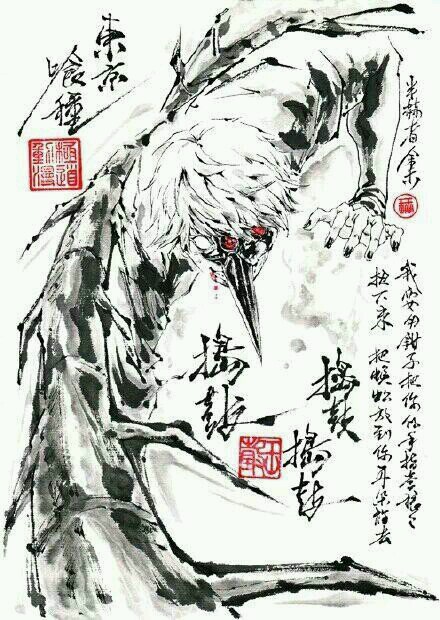 東京
喰種
極道
動漫
半赫者金木
搗鼓
搗鼓
搗鼓
我要用鉗子把你的手指
扭下来 把蜈蚣放到你耳朵 去